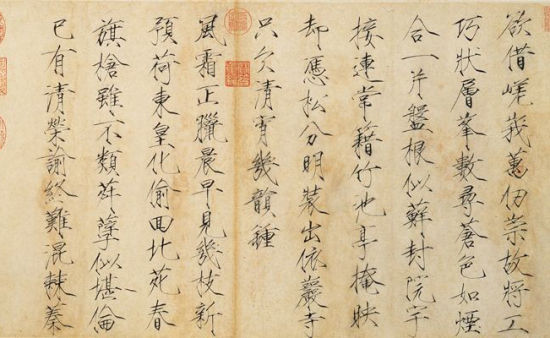 欲借嵯峩萬仞崇故將工
巧狀層峯數尋蒼色如煙
合一片盤根似蘚封院宇
接連常籍竹池亭掩映
却應松分明裝出依巖寺
只欠清宵幾韻鍾
風霜正臘晨早見幾枝新
預荷東皇化偷回北苑春
旗槍雖不類荈孽似堪倫
已有清榮諭終難混棘蓁